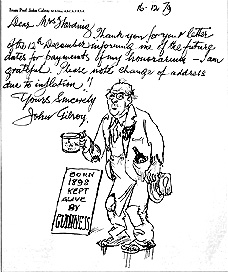 From Prof John Gilroy
16-12-79
Dear Mrs Harding,
Thank you for your letter
of the 12th December informing me of the future
dates for payments of my honorarium - I am
grateful. Please note change of address
due to inflation!!
Yours Sincerely
John Gilroy.
BORN
1898
KEPT
ALIVE
BY
GUINNESS